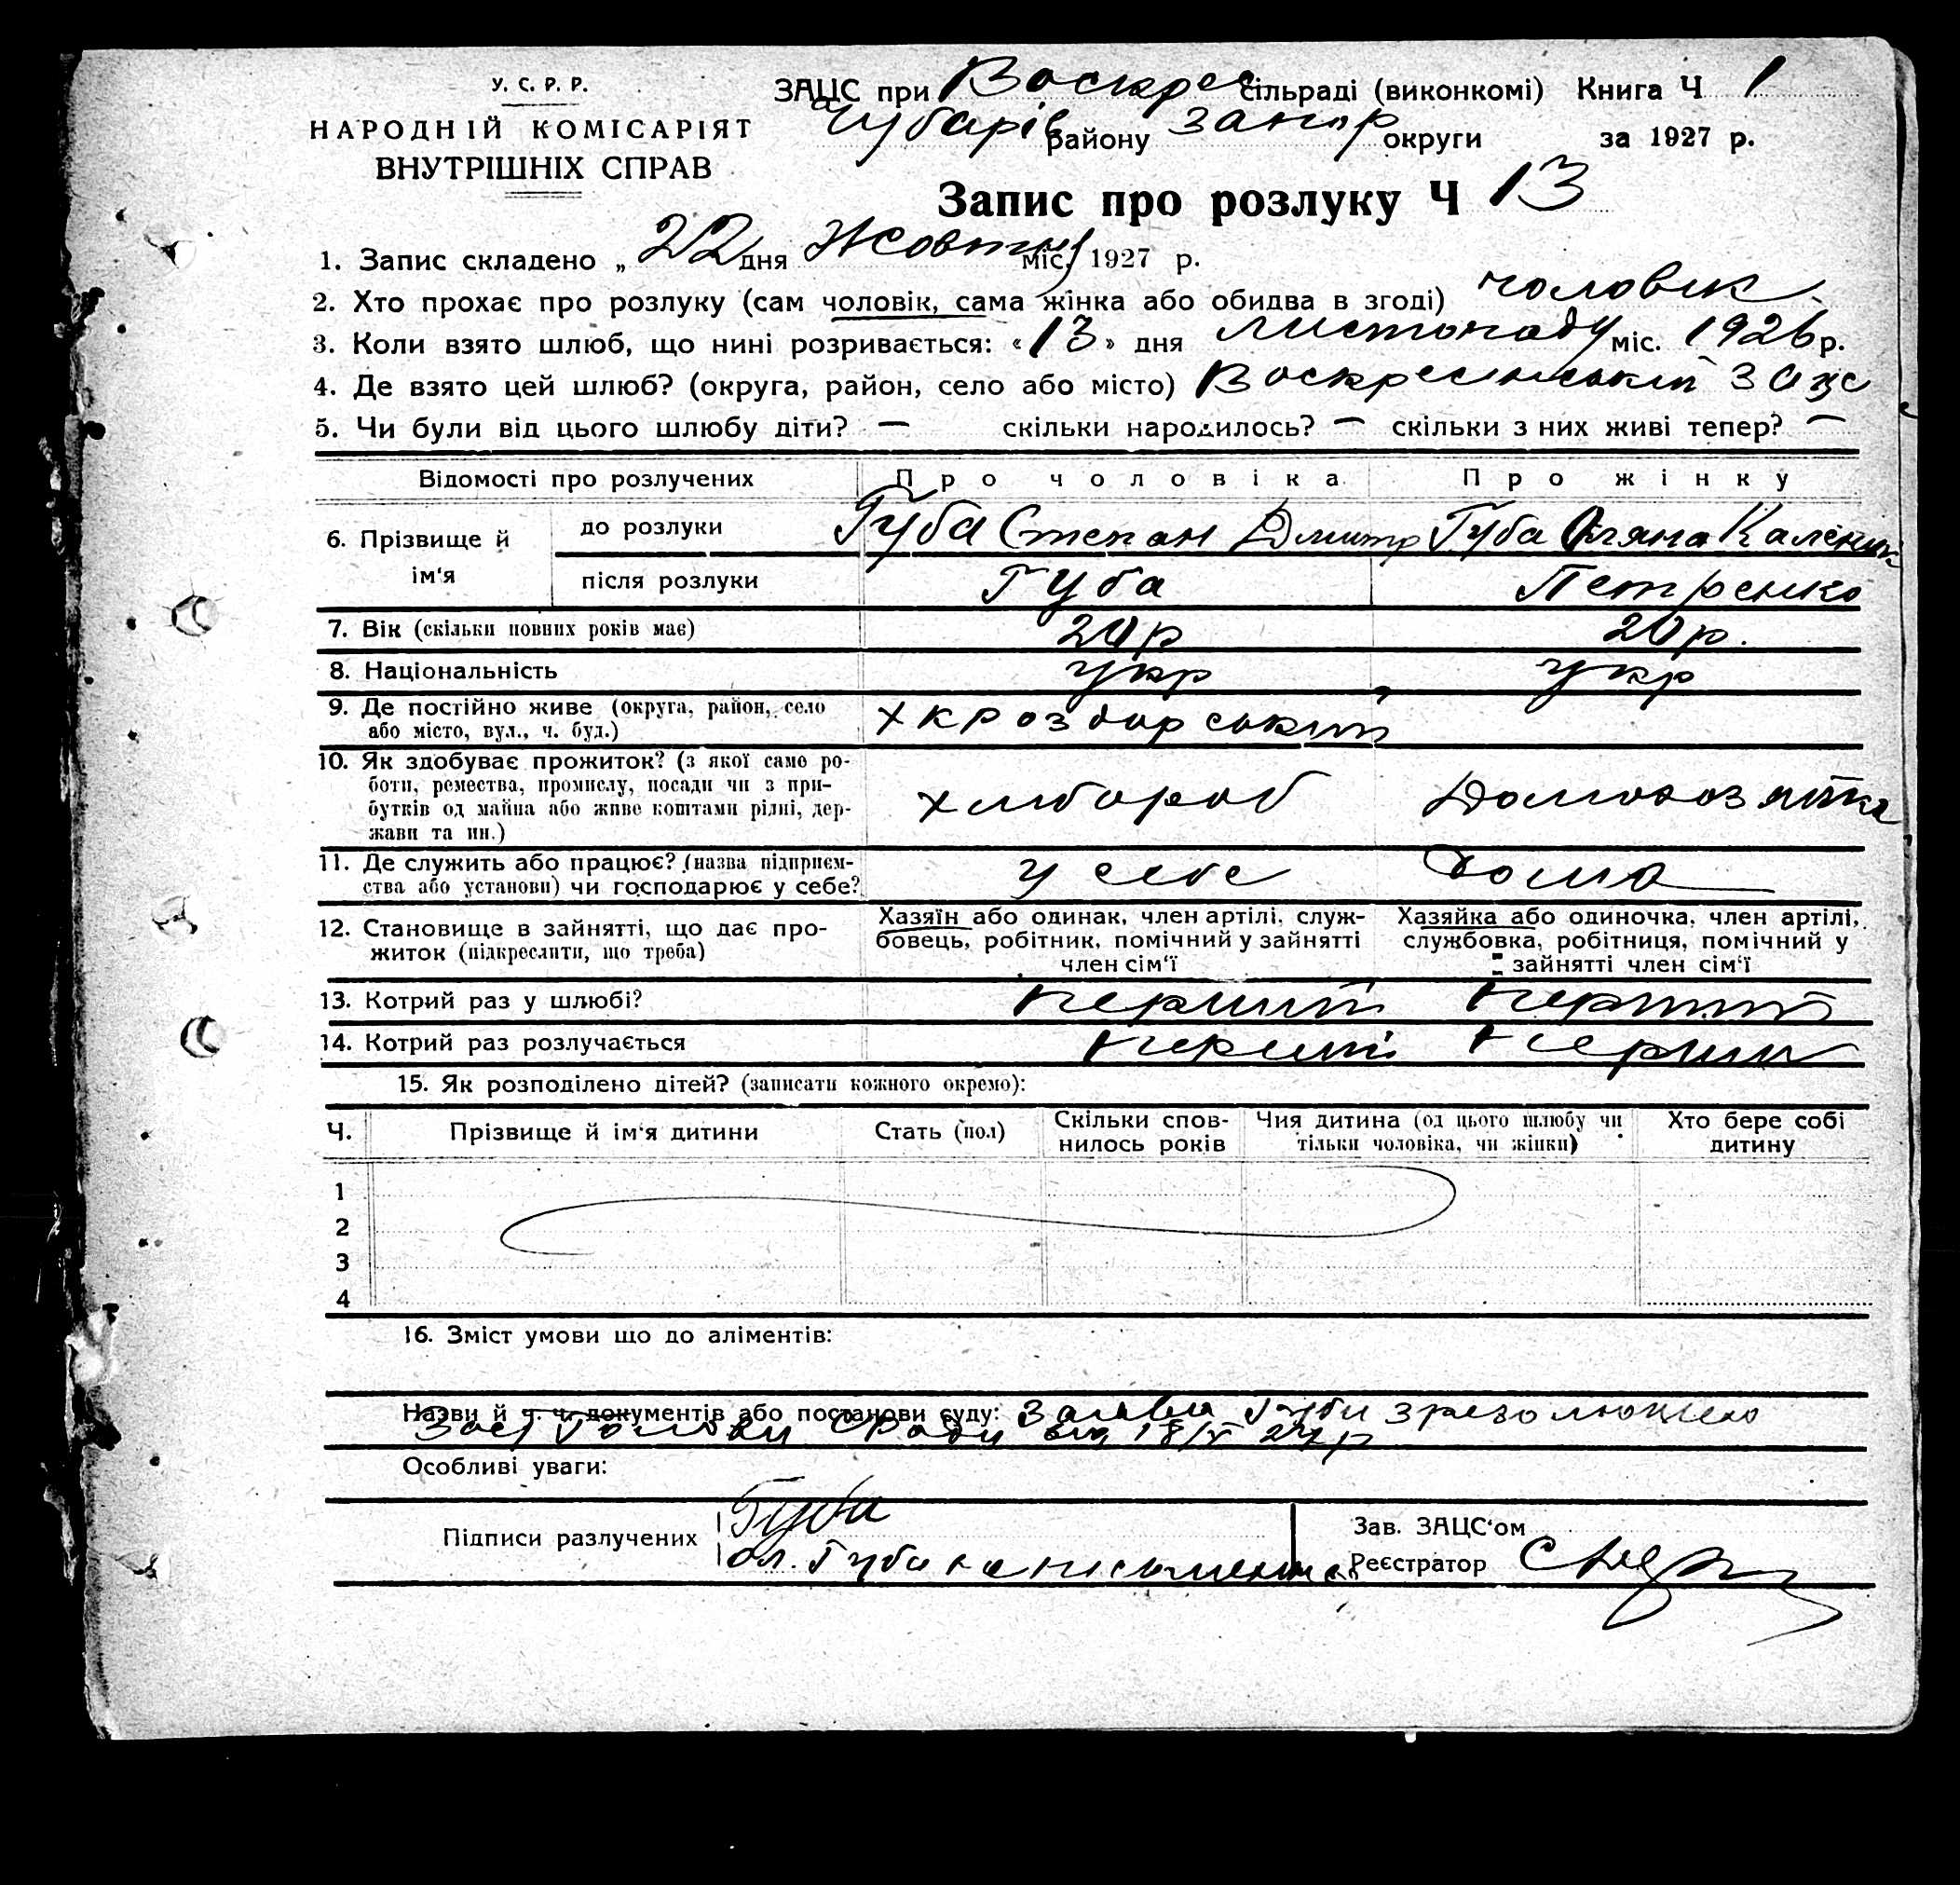 У. С. Р. Р.
НАРОДНІЙ КОМІСАРІЯТ
ВНУТРІШНІХ СПРАВ
ЗАЦС при Воскрес сільраді (виконкомі) Книга Ч 1
Чубарів району Запор округи за 1927 р.
Запис про розлуку Ч 13
1. Запис складено „ 22 дня Жовтня міс. 1927 р.
2. Хто прохає про розлуку (сам чоловік, сама жінка або обидва в згоді) чоловік
3. Коли взято шлюб, що нині розривається: «13» дня листопаду міс. 1926 р.
4. Де взято цей шлюб? (округа, район, село або місто) Воскресенський Зацс
5. Чи були від цього шлюбу діти? — скільки народилось? — скільки з них живі тепер? —
Відомості про розлучених Про чоловіка Про жінку
6. Прізвище й ім‘я
до розлуки Губа Степан Дмитр Губа Оляна Каленик
після розлуки Губа Петренко
7. Вік (скільки повних років має) 20 р 20 р.
8. Національність укр укр
9. Де постійно живе (округа, район, село
або місто, вул., ч. буд.)
10. Як здобуває прожиток? (з якої само ро-
боти, ремества, промислу, посади чи з при-
бутків од майна або живе коштами рідні, дер-
жави та ин.)
хлібороб
11. Де служить або працює? (назва підприєм-
ства або установи) чи господарює у себе?
у себе дома
12. Становище в зайнятті, що дає про-
житок (підкреслити, що треба)
Хазяїн або одинак, член артілі, служ-
бовець, робітник, помічний у зайнятті
член сім‘ї
Хазяйка або одиночка, член артілі,
службовка, робітниця, помічний у
зайнятті член сім‘ї
13. Котрий раз у шлюбі? перший перший
14. Котрий раз розлучається перший перший
15. Як розподілено дітей? (записати кожного окремо):
Ч. Прізвище й ім‘я дитини Стать (пол) Скільки спов-
нилось років Чия дитина (од цього шлюбу чи
тільки чоловіка, чи жінки) Хто бере собі
дитину
1
2
3
4
16. Зміст умови що до аліментів:
Назви й ч. ч. документів або постанови суду: Заява Губи з резолюцією
Заст Голови
Особливі уваги:
Підписи разлучених Губа
Ол. Губа неписьменна
Зав. ЗАЦС‘ом
Реєстратор